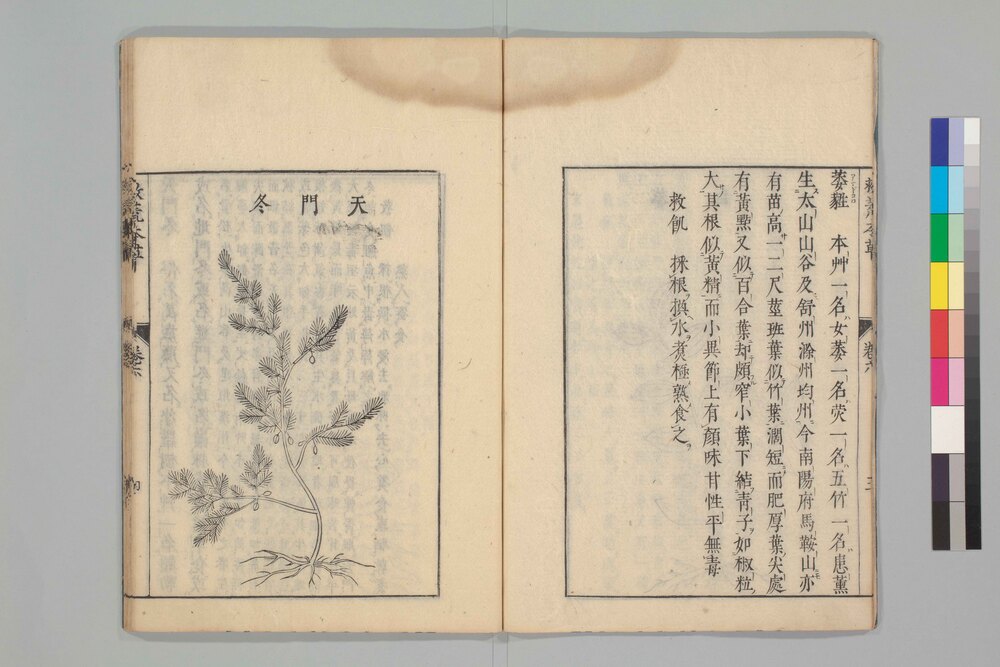 萎蕤　本艸一名女萎一名熒一名玉竹一名馬薰
生太山山谷及舒州滁州均州今南陽府馬鞍山亦
有苗高一二尺莖班葉似竹葉濶短而肥厚葉尖處
有黃點又似百合葉却頗窄小葉下結靑子如椒粒
大其根似黃精而小異節上有鬚味甘性平無毒
救飢　採根換水煮極熟食之
天門冬
卷六